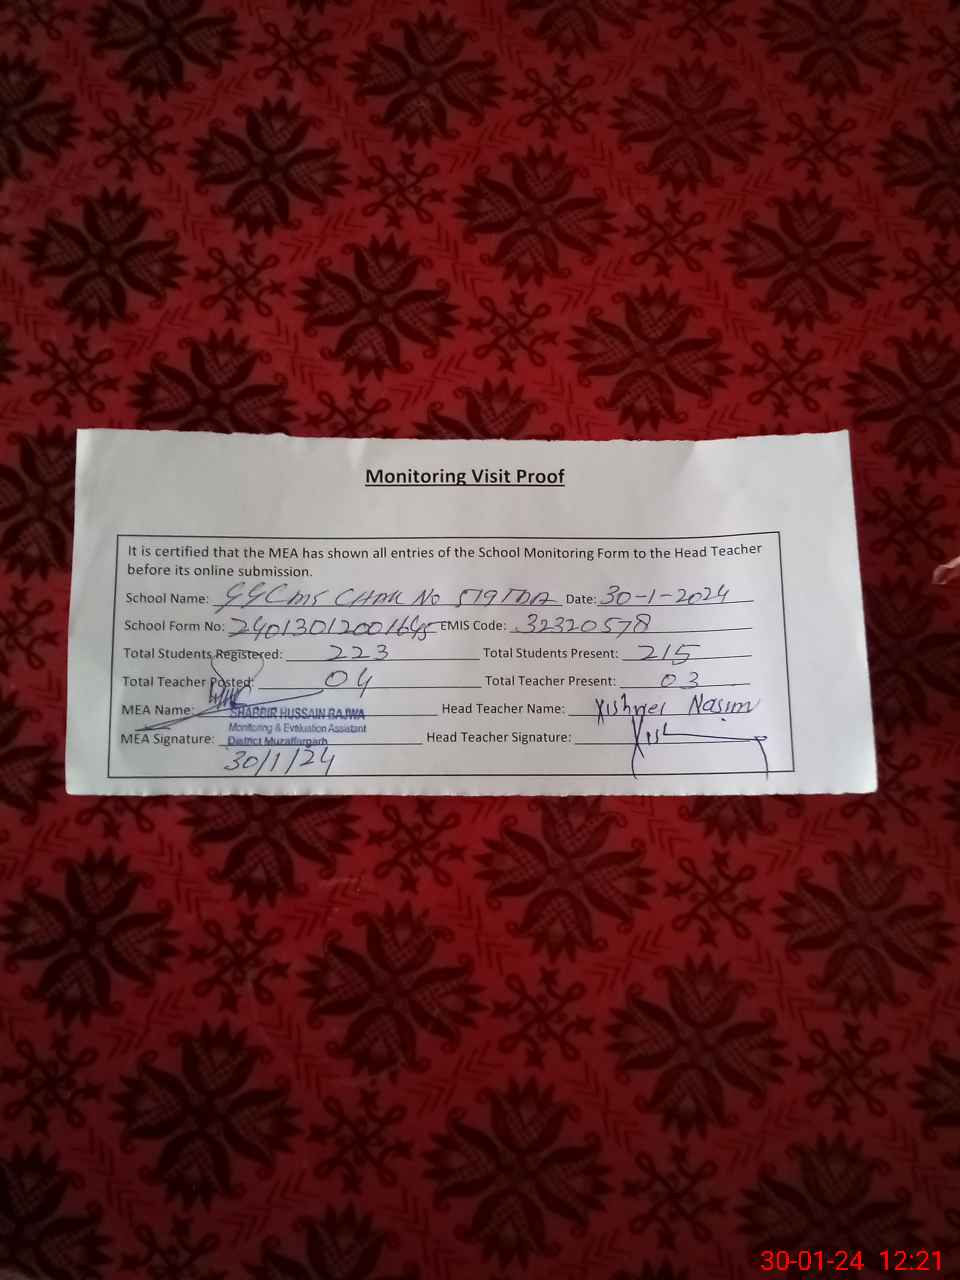 Monitoring Visit Proof
It is certified that the MEA has shown all entries of the School Monitoring Form to the Head Teacher
before its online submission.
School Name: GGCMS CHAK No 519 TDA Date: 30-1-2024
School Form No: EMIS Code: 32320578
Total Students Registered: 223 Total Students Present: 215
Total Teacher Posted: 04 Total Teacher Present: 03
MEA Name: SHABBIR HUSSAIN RAJWA Head Teacher Name: Nasim
Monitoring & Evaluation Assistant
MEA Signature: District Muzaffargarh Head Teacher Signature:
30/1/24
30-01-24 12:21